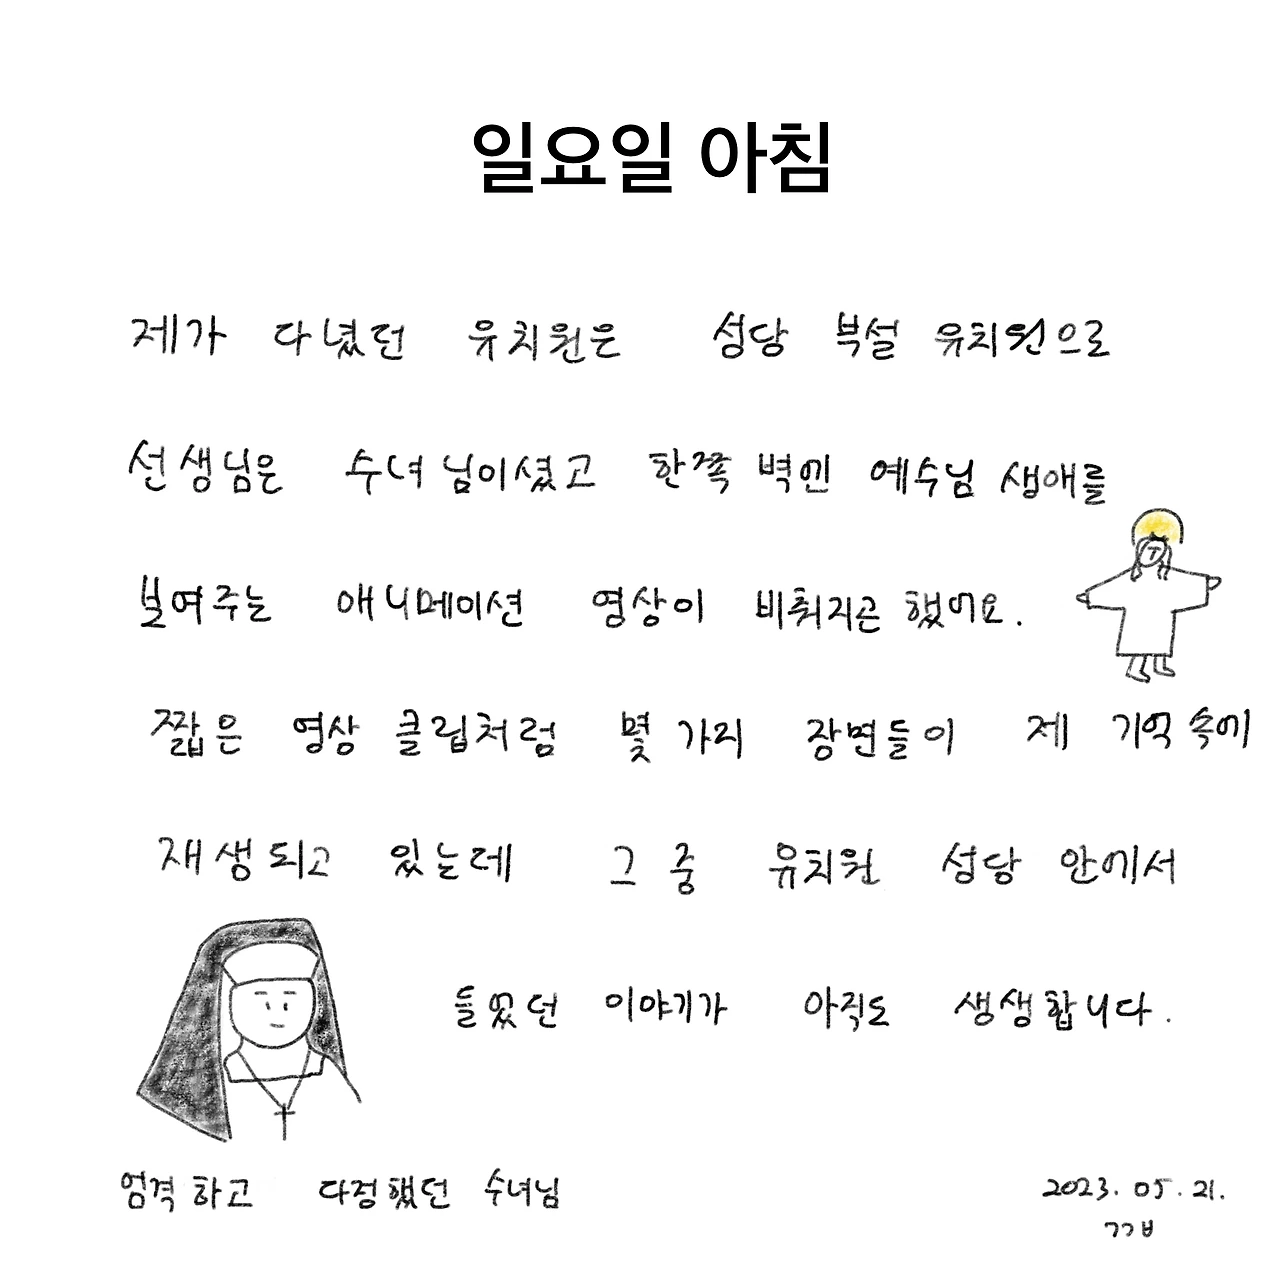 일요일 아침
제가 다녔던 유치원은 성당 부설 유치원으로
선생님은 수녀님이셨고 한쪽 벽엔 예수님 생애를
보여주는 애니메이션 영상이 비춰지곤 했어요.
짧은 영상 클립처럼 몇 가지 장면들이 제 기억 속에
재생되고 있는데 그 중 유치원 성당 안에서
들었던 이야기가 아직도 생생합니다.
엄격하고 다정했던 수녀님
2023. 05. 21.
ㄱㄱㅂ